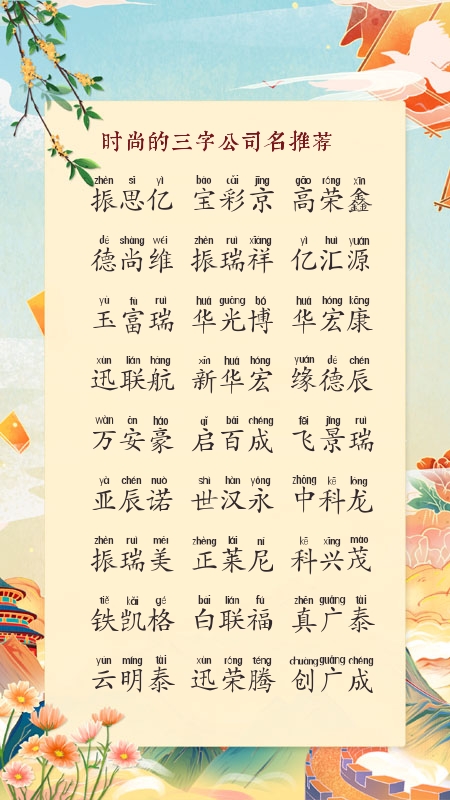 时尚的三字公司名推荐
zhèn sī yì bǎo cǎi jīng gāo róng xīn
振思亿 宝彩京 高荣鑫
dé shàng wéi zhèn ruì xiáng yì huì yuán
德尚维 振瑞祥 亿汇源
yù fù ruì huá guāng bó huá hóng kāng
玉富瑞 华光博 华宏康
xùn lián háng xīn huá hóng yuán dé chén
迅联航 新华宏 缘德辰
wàn ān háo qǐ bǎi chéng fēi jǐng ruì
万安豪 启百成 飞景瑞
yà chén nuò shì hàn yǒng zhōng kē lóng
亚辰诺 世汉永 中科龙
zhèn ruì měi zhèng lái ní kē xīng mào
振瑞美 正莱尼 科兴茂
tiě kǎi gé bai lián fú zhēn guǎng tài
铁凯格 白联福 真广泰
yún míng tài xùn róng téng chuàng guǎng chéng
云明泰 迅荣腾 创广成